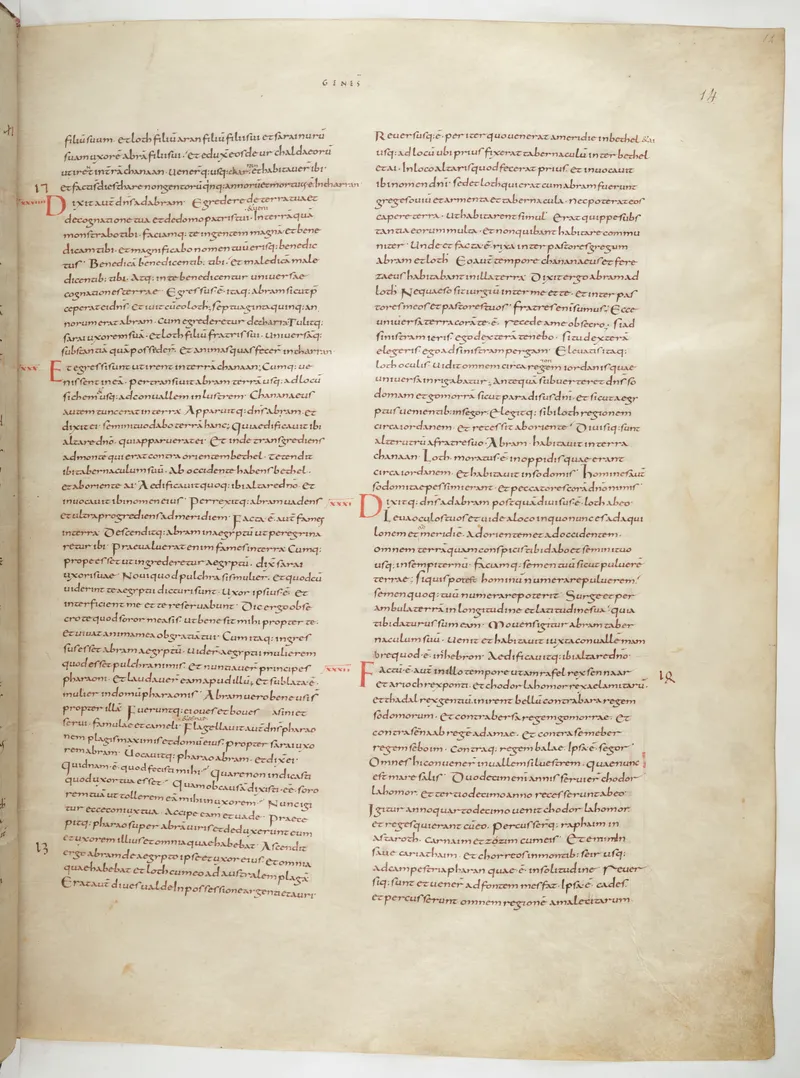 GENIS
14
filiu suum · et loth filiu aran filiu filii sui · et sarai nurū
suam uxorē abrā filii sui · et eduxͭ eos de ur chaldaeorū
ut irent in terrā chanaan · Uenerq: usq: charran et habitauer ibi ·
et facti sunt dies thare · et mortuus ē In charran
17
xxviiii Dixit aut dns ad abram · Egredere de terra tua et
de cognatione tua et de domo patris tui · In terra quā
monstrabo tibi · faciamq: te in gentem magnā et bene
dicam tibi · et magnificabo nomen tuū erisq: benedic
tus · Benedicā benedicentib: tibi · et maledicā male
dicentib: tibi · Atq: in te benedicentur uniuersae
cognationes terrae · Egressus ē itaq: abram sicut p̄
ceperat ei dns · et iuit cū eo loth · septuaginta quinq: an
norum erat abram · cum egrederetur de charra Tulitq:
sarai uxorem suā · et loth filiū fratris sui · Uniuersāq:
substantiā quā possederꝰ · et animas quas fecer in charran
xxx · Et egressi sunt ut irent in terrā chanaan; Cumq: ue
nissent in eā · pertransiuit abram terrā usq: ad locū
sichem usq: ad conuallem inlustrem · Chananaeus
autem tunc erat in terra · Apparuitq: dns abram · et
dixit ei · semini tuo dabo terrā hanc; Qui aedificauit ibi
altare dno · qui apparuerat ei · Et inde transgrediens
ad montē qui erat contra orientem bethel · tetendit
ibi tabernaculum suū · Ab occidente habens bethel ·
et ab oriente ai · Aedificauit quoq: ibi altare dno · et
inuocauit ibi nomen eius · Perrexitq: abram uadens
et ultra progrediens ad meridiem · Facta ē aut fames
in terra · Descenditq: abram in aegyptū ut peregrina
retur ibi · Praeualuerat enim fames in terra · Cumq:
prope esset ut ingrederetur aegyptū · dixͭ sarai
uxori suae · Noui quod pulchra sis mulier · et quod cū
uiderint te aegyptii dicturi sunt · Uxor ipsius ē · et
interficient me et te reseruabunt · Dic ergo obse
cro te quod soror mea sis · ut bene sit mihi propter te ·
et uiuat anima mea ob gratiā tui · Cum itaq: ingres
sus esset abram aegyptū · uider aegyptii mulierem
quod esset pulchra nimis · et nuntiauer principes
pharaoni · et laudauer eam apud illū · et sublata ē
mulier in domū pharaonis · Abram uero bene usi s
propter illā · Fueruntq: ei oues et boues · asini et
serui · famulae et cameli · Flagellauit aut dns pharao
nem plagis maximis et domū eius · propter sarai uxo
rem abram · Uocauitq: pharao abram · et dixͭ ei ·
Quidnam ē quod fecisti mihi · Quare non indicasti
quod uxor tua esset · Quam ob causā dixisti · eē soro
rem tuā · ut tollerem eā mihi in uxorem · Nunc igi
tur ecce coniux tua · Accipe eam et uade · Praece
pitq: pharao super abrā uiris · et deduxerunt eum
13
et uxorem illius et omnia quae habebat · Ascendit
ergo abram de aegypto ipse et uxor eius · et omnia
quae habebat · et loth cum eo ad australem plagā
Erat aut diues ualde In possessione argenti et auri ·
Reuersusq: ē · per iter quo uenerat a meridie in bethel
usq: ad locū ubi prius fixerat tabernaculū inter bethel
et ai · In loco altaris quod fecerat prius · et inuocauit
ibi nomen dni · sed et loth qui erat cum abram fuerunt
greges ouiū et armenta et tabernacula · nec poterat eos
capere terra · ut habitarent simul · Erat quippe subs
tantia eorum multa · et nonquibant habitare commu
niter · Unde et facta ē rixa inter pastores gregum
abram et loth · Eo aut tempore chananaeus et fere
zaeus habitabant in illa terra · Dixit ergo abram ad
loth · Ne quaeso sit iurgiū inter me et te · et inter pas
tores meos et pastores tuos · fratres enī sumus · Ecce
uniuersa terra corā te ē · recede a me obsecro · si ad
sinisteram ieris · ego dexterā tenebo · si tu dexterā
elegeris · ego ad sinisteram pergam · Eleuatis itaq:
loth oculis · uidit omnem circa regem iordanis quae
uniuersa inrigabatur · Antequā subuerteret dns so
domam et gomorrā · sicut paradisus dni · et sicut aegy
ptus uenientib: in segor · elegitq: sibi loth regionem
circa iordanem · et recessit ab oriente · Diuisiq: sunt
alterutrū a fratre suo · Abram habitauit in terra
chanaan · Loth moratus ē in oppidis quae erant
circa iordanem · et habitauit in sodomis · Homines aut
sodomitae pessimi erant · et peccatores corā dno nimis ·
xxxi Dixitq: dns ad abram postquā diuisus ē loth ab eo ·
Leua oculos tuos et uide a loco in quo nunc es ad aqui
lonem et meridiē · ad orientem et ad occidentem ·
omnem terrā quam conspicis tibi dabo et semini tuo
usq: in sempiternū · faciamq: semen tuū sicut puluerē
terrae; siquis potest hominū numerare puluerem ·
semen quoq: tuū numerare poterit · Surge et per
ambula terrā in longitudine et latitudine sua · quia
tibi daturus sum eam · Mouens igitur abram taber
naculum suū · Uenit et habitauit iuxta conuallē mam
bre quod ē in hebron · Aedificauitq: ibi altare dno ·
xxxii Factū ē aut in illo tempore ut amrafel rex sennaar
18
et arioch rex ponti · et chodorlahomor rex aelamitarū ·
et thadal rex gentiū · inirent bellū contra bara regem
sodomorum · et contra bersa regem gomorrae · et
contra sennaab regē adamae · et contra semeber
regem seboim · Contraq: regem balae · Ipsa ē segor ·
Omnes hi conuener in uallem siluestrem · quae nunc
est mare salis · Duodecim enī annis seruier chodor
lahomor · et tertio decimo anno recesserunt ab eo
Igitur anno quarto decimo uenit chodorlahomor ·
et reges qui erant cū eo · Percusserq: raphaim in
astaroth · carnaim et zozim cum eis · Et emim in
saue cariathaim · et chorreos in montib: seir usq:
ad campestria pharan quae ē in solitudine · reuer
siq: sunt · et uener ad fontem mesfat · Ipsa ē cades ·
et percusserunt omnem regionē amalecitarum ·